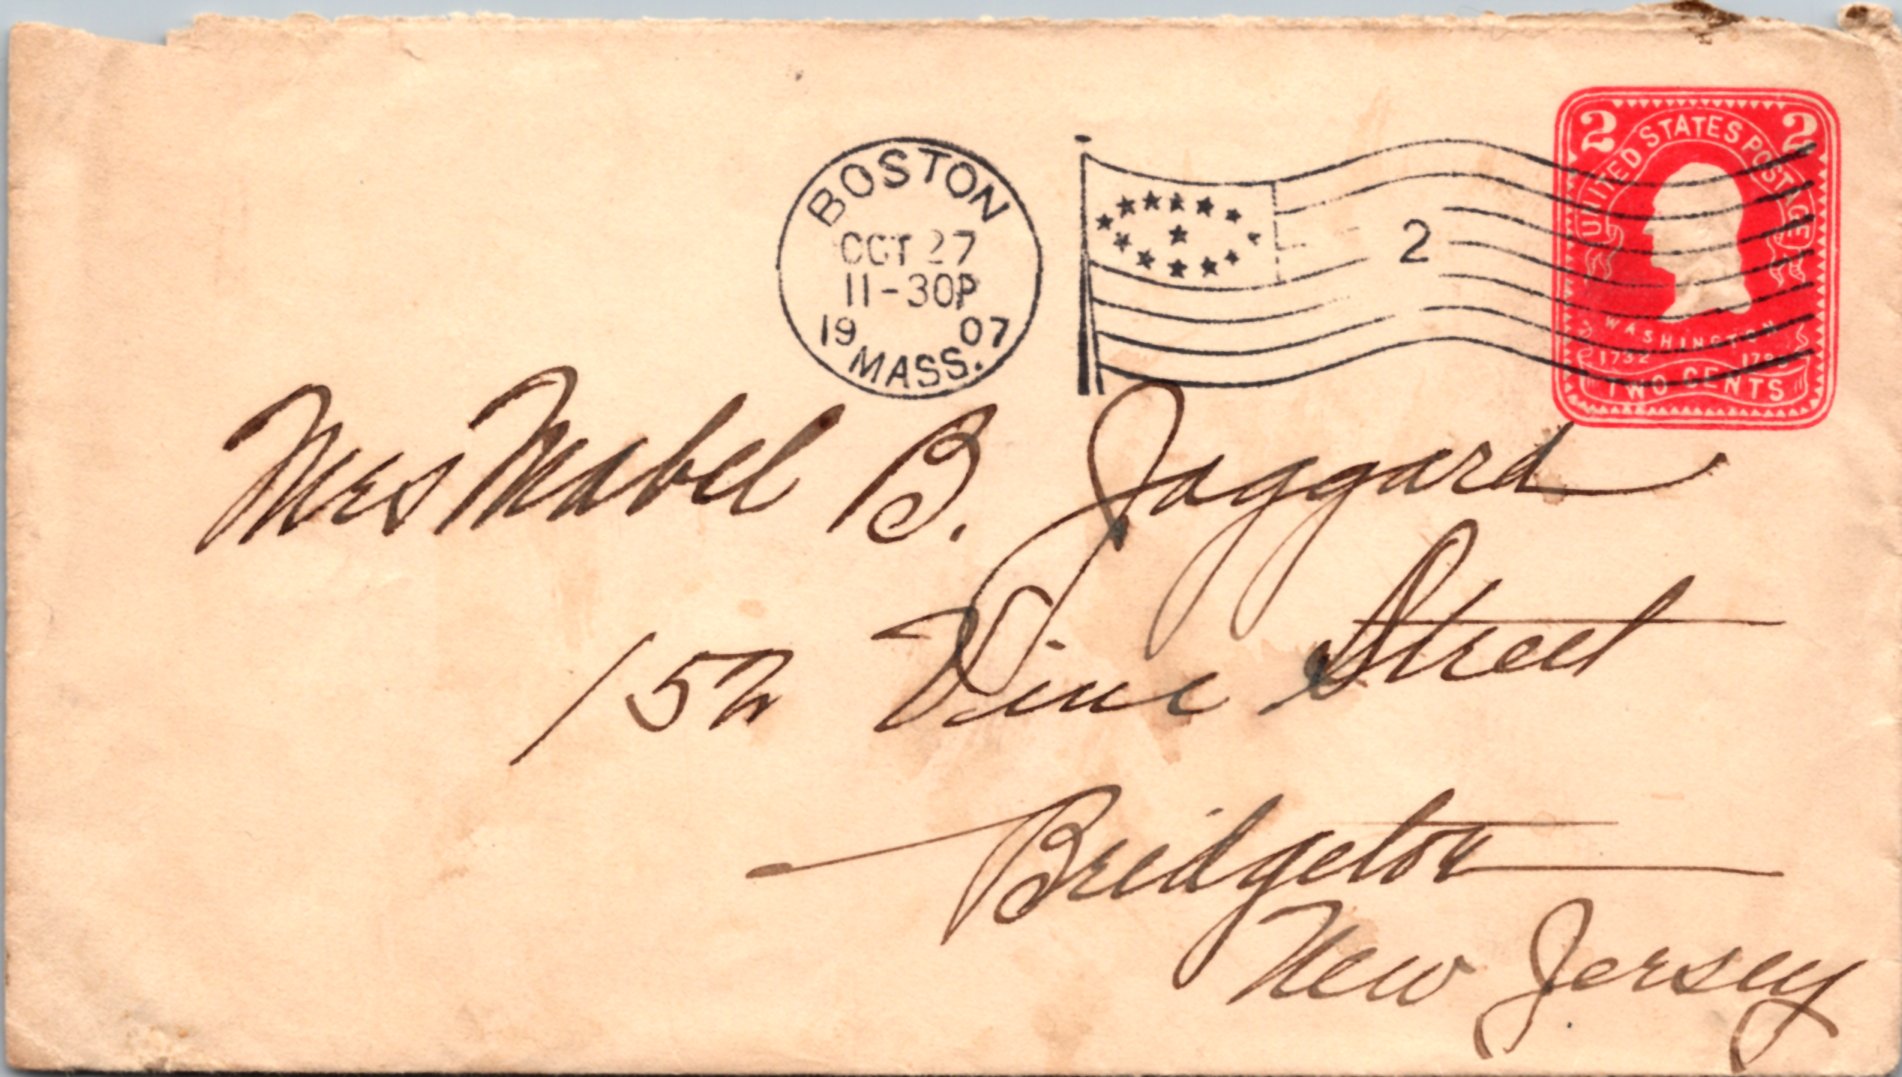 BOSTON
OCT 27
11-30P
19 07
MASS.
2
2 2
UNITED STATES POSTAGE
WASHINGTON
1732 1799
TWO CENTS
Mrs Mabel B. Jaggard
152 Vine Street
Bridgeton
New Jersey